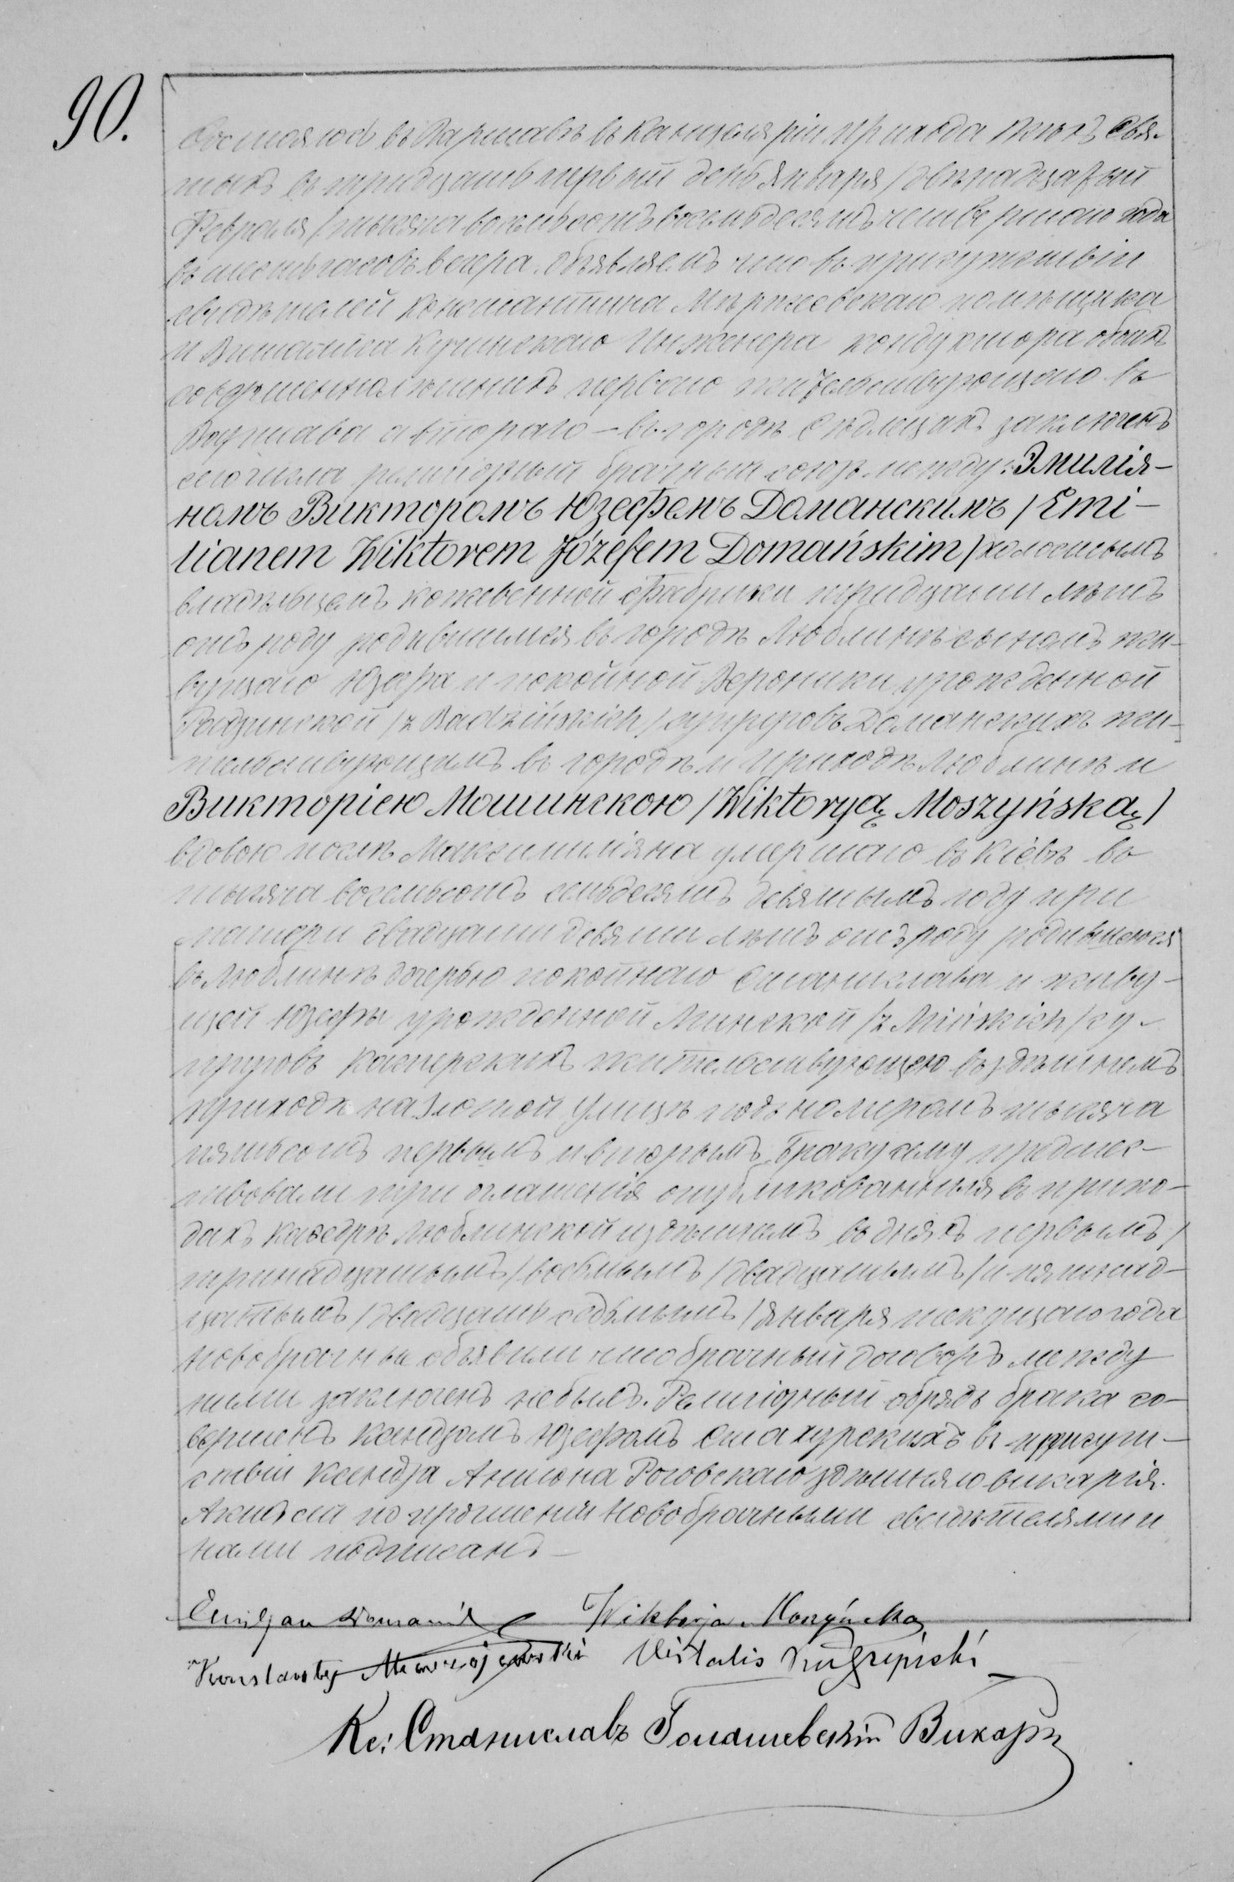 90.
Состоялось въ Варшавѣ въ Канцеляріи прихода Всѣхъ Свя-
тыхъ въ тридцать первый день Января /двѣнадцатый
Февраля/ тысяча восемьсотъ восемьдесятъ четвертаго года
въ шесть часовъ вечера. Объявляемъ что въ присутствіи
свидѣтелей Константина помѣщика
и Виталиса Инженера кондуктора обоихъ
совершеннолѣтнихъ перваго жительствующаго въ
Варшавѣ а втораго — въ городѣ Сѣдльцахъ заключенъ
сего числа религіозный брачный союзъ между: Эмилія-
номъ Викторомъ Юзефомъ Доманскимъ /Emi-
lianem Wiktorem Józefem Domańskim/ холостымъ
владѣльцемъ кожевенной Фабрики тридцати лѣтъ
отъ роду родившимся въ городѣ Люблинѣ сыномъ жи-
вущаго Юзефа и покойной Вероники урожденной
Бадзинской /z Badzińskich/ супруговъ Доманскихъ жи-
тельствующимъ въ городѣ и приходѣ Люблинѣ и
Викторіею Мошинскою /Wiktoryą Moszyńską/
вдовою послѣ Максимиліяна умершаго въ Кіевѣ въ
тысяча восемьсотъ семьдесятъ девятомъ году при
матери двадцати девяти лѣтъ отъ роду родившеюся
въ Люблинѣ дочерью покойнаго Станислава и живу-
щей Юзефы урожденной Минской /z Mińskich/ су-
пруговъ Касперскихъ жительствующею въ здѣшнемъ
приходѣ на Злотой улицѣ подъ номеромъ тысяча
пятьсотъ первымъ и вторымъ. Браку сему предшес-
твовали три оглашенія опубликованныя въ прихо-
дахъ Каѳедрѣ Люблинской и здѣшнемъ въ дняхъ первымъ /
тринадцатымъ/ восьмымъ /двадцатымъ/ и пятнад-
цатымъ /двадцать седьмымъ/ Января текущаго года
Новобрачные объявили что брачный договоръ между
ними заключенъ небылъ. Религіозный обрядъ брака со-
вершенъ Ксендзомъ Юзефомъ въ присут-
ствіи Ксендза Антона Роговскаго здѣшняго викарія.
Актъ сей по прочтеніи Новобрачными свидѣтелями и
нами подписанъ —
Emiljan Domański Wiktorja Moszyńska
Konstanty Witalis
Кс: Станиславъ Гомашевскій Викарій